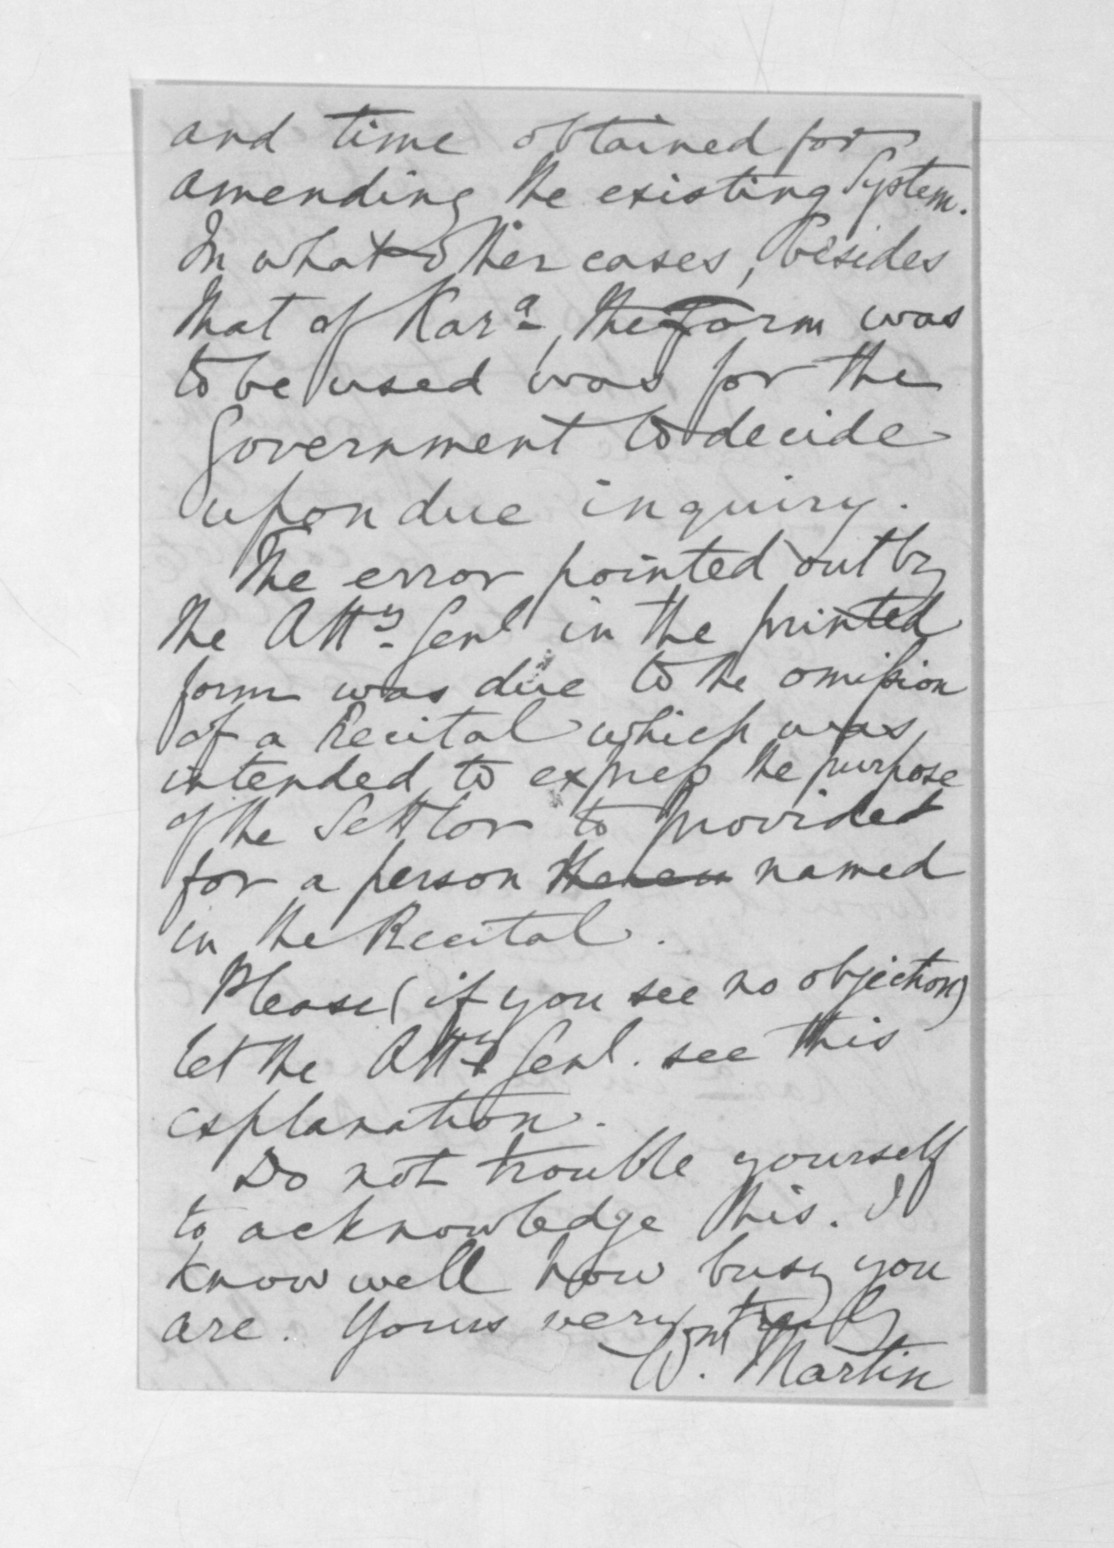 and time obtained for
amending the existing System.
In what other cases, besides
that of Karª, the form was
to be used was for the
Government to decide
upon due inquiry.
The error pointed out by
the Attʸ. Genl in the printed
form was due to the omission
of a Recital which was
intended to express the purpose
of the Settlor to provided
for a person therein named
in the Recital.
Please (if you see no objection)
let the Attʸ Genl. see this
explanation.
Do not trouble yourself
to acknowledge this. I
know well how busy you
are. Yours very truly
Wᵐ. Martin